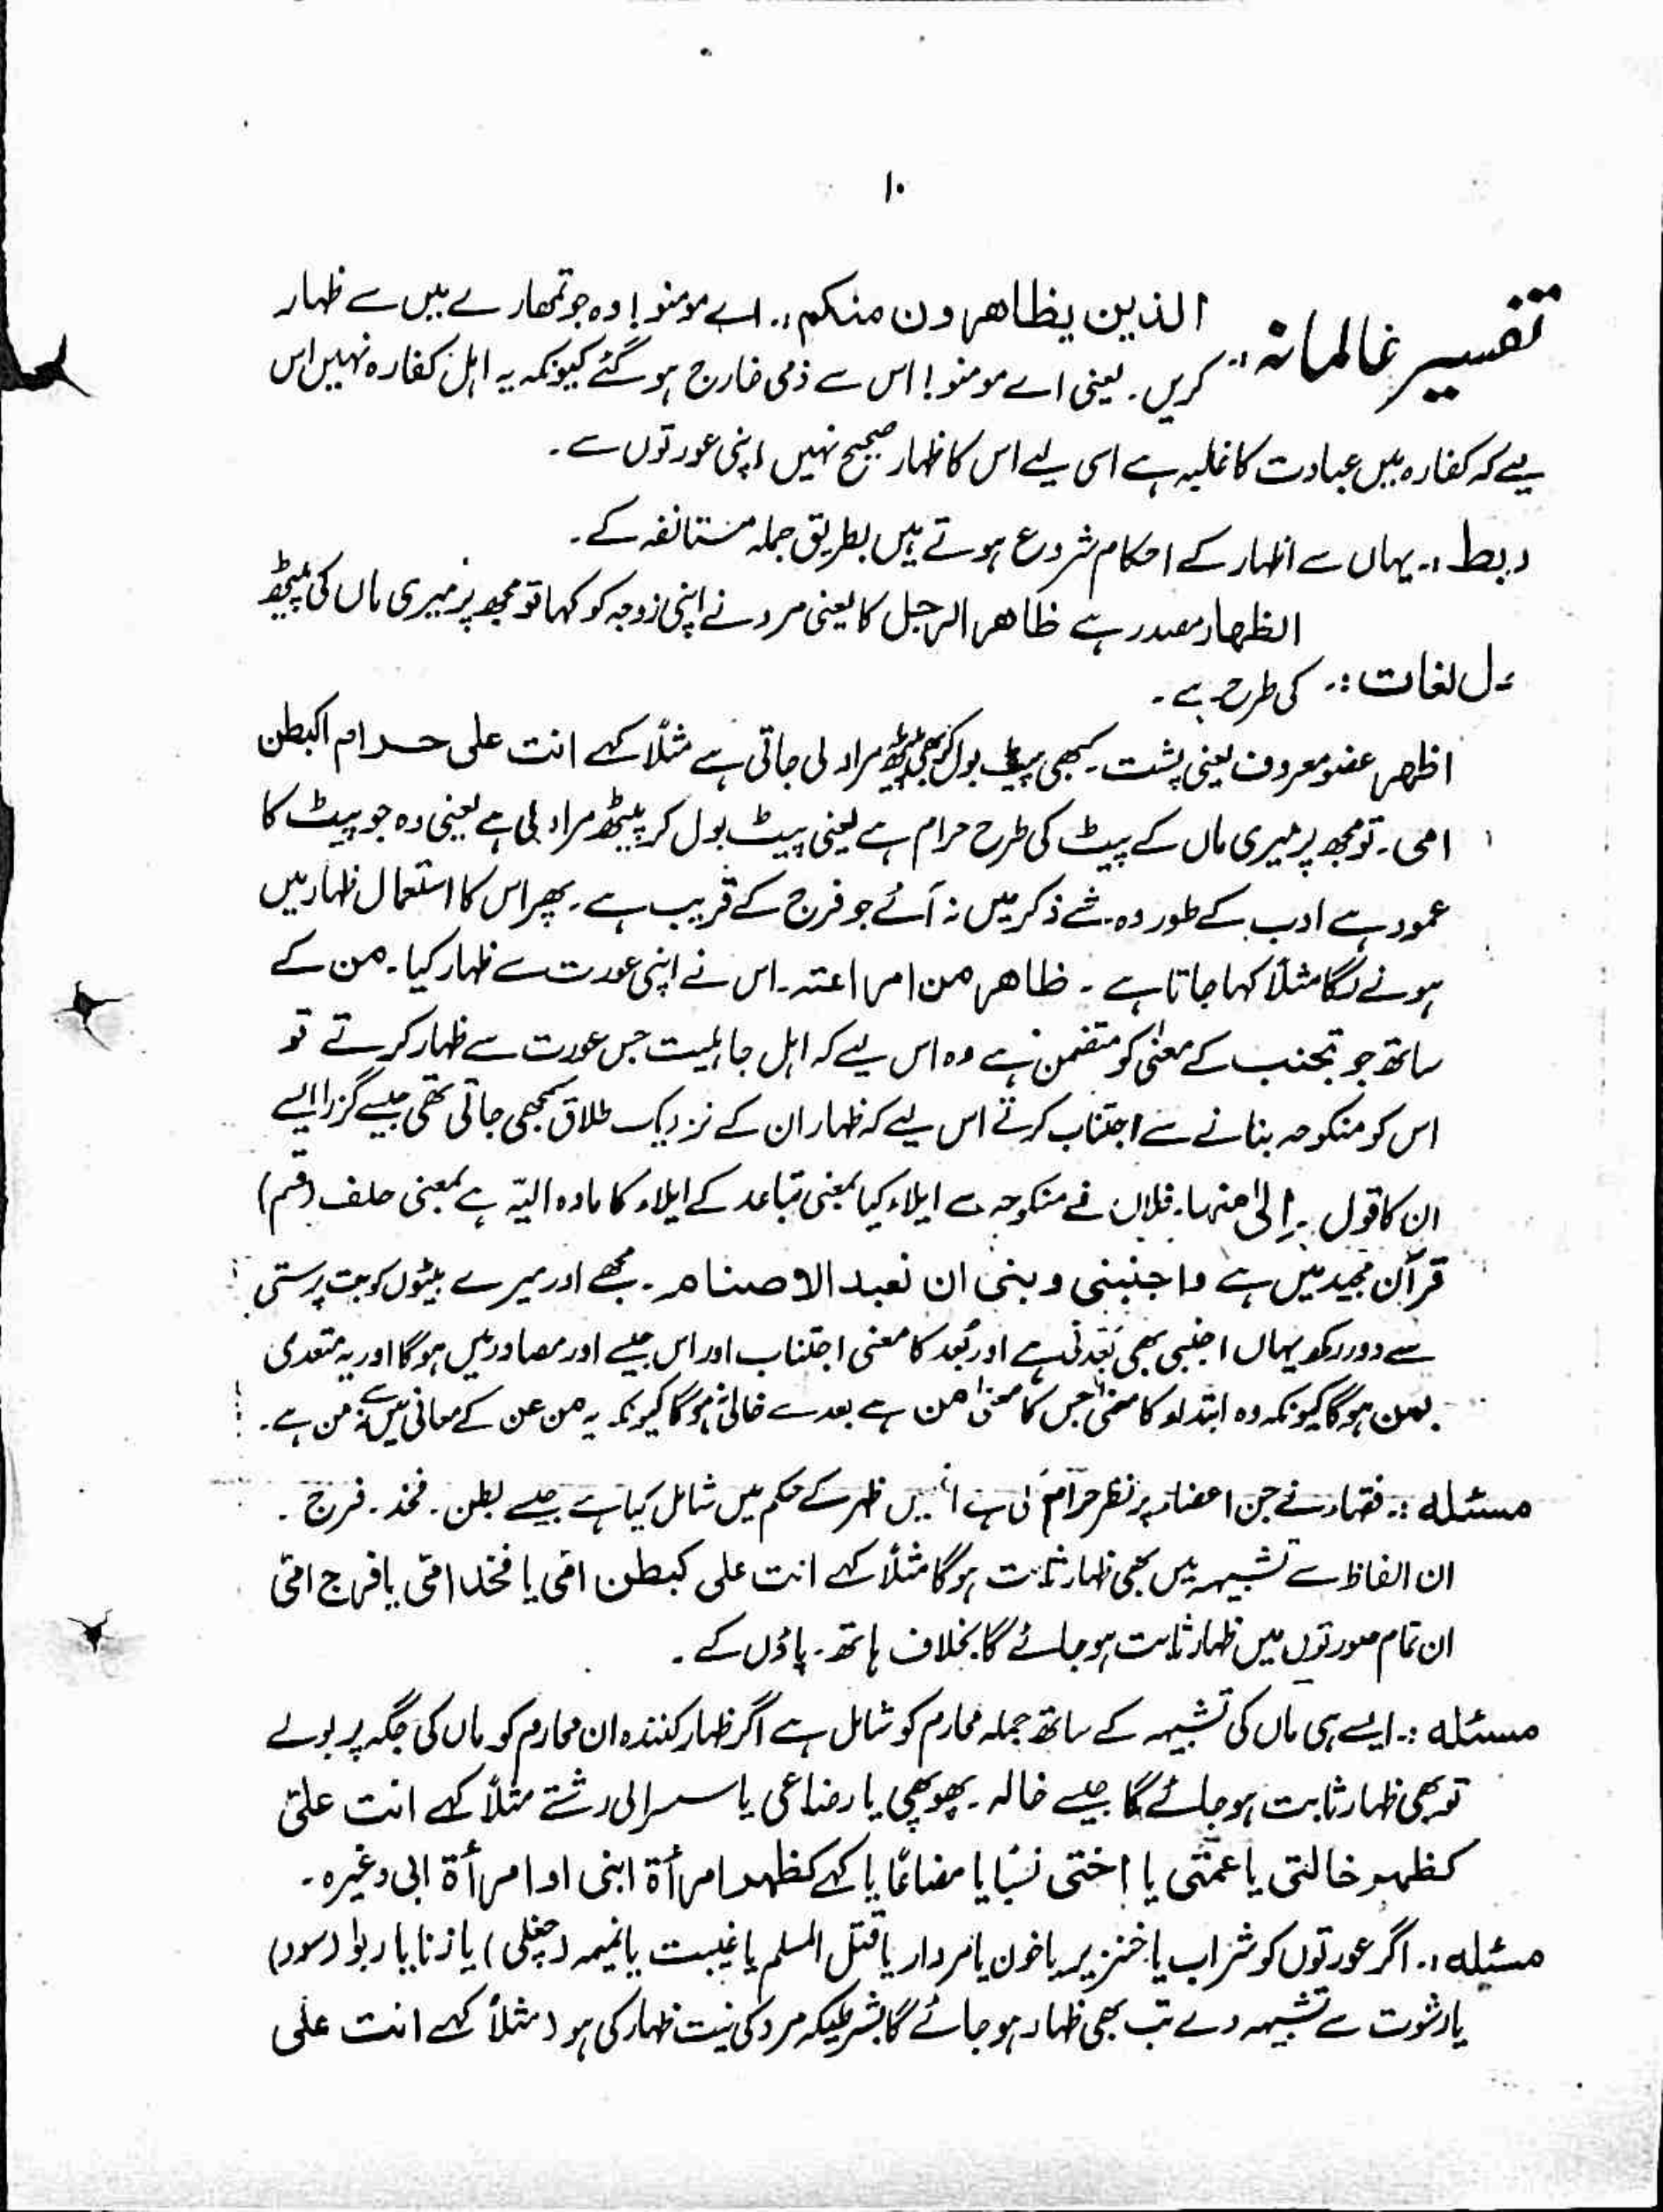 ۱۰
تفسیر عالمانہ :- الذین یظاھرون منکم ،، اے مومنو! وہ جو تمھارے میں سے ظہار
کریں ۔ یعنی اے مومنو! اس سے ذمی خارج ہو گئے کیونکہ یہ اہل کفارہ نہیں اس
لیے کہ کفارہ میں عبادت کا غلبہ ہے اسی لیے اس کا ظہار صحیح نہیں اپنی عورتوں سے ۔
ربط :- یہاں سے اظہار کے احکام شروع ہوتے ہیں بطریق جملہ مستانفہ کے ۔
الظھار مصدر ہے ظاھر الرجل کا یعنی مرد نے اپنی زوجہ کو کہا تو مجھ پر میری ماں کی پیٹھ
ل لغات :- کی طرح ہے ۔
اظھر عضو معروف یعنی پشت ۔ کبھی بول کر پیٹھ مراد لی جاتی ہے مثلاً کہے انت علی حرام اکبطن
امی ۔ تو مجھ پر میری ماں کے پیٹ کی طرح حرام ہے یعنی پیٹ بول کر پیٹھ مراد لی ہے یعنی وہ جو پیٹ کا
عمود ہے ادب کے طور وہ شے ذکر میں نہ آئے جو فرج کے قریب ہے ۔ پھر اس کا استعمال ظہار میں
ہونے لگا مثلاً کہا جاتا ہے ۔ ظاھر من امراعتہ ۔ اس نے اپنی عورت سے ظہار کیا ۔ من کے
ساتھ جو تجنب کے معنیٰ کو متضمن ہے وہ اس لیے کہ اہل جاہلیت جس عورت سے ظہار کرتے تو
اس کو منکوحہ بنانے سے اجتناب کرتے اس لیے کہ ظہار ان کے نزدیک طلاق سمجھی جاتی تھی جیسے گزرا ایسے
ان کا قول ۔ إلیٰ منہا ۔ فلاں نے منکوحہ سے ایلاء کیا بمعنی تباعد کے ایلاء کا مادہ الیّہ ہے بمعنی حلف (قسم)
قرآن مجید میں ہے واجنبنی وبنی ان نعبد الاصنام ۔ مجھے اور میرے بیٹوں کو بت پرستی
سے دور رکھ یہاں اجنبی بھی بَعِّدنی ہے اور بُعد کا معنی اجتناب اور اس جیسے اور مصادر میں ہوگا اور یہ متعدی
بمن ہوگا کیونکہ وہ ابتداء کا معنیٰ جس کا معنیٰ من ہے بعد سے خالی ہوگا کیونکہ یہ من عن کے معانی میں نہ من ہے ۔
مسئلہ :- فقہاء نے جن اعضاء پر نظر حرام کی ہے انہیں ظہر کے حکم میں شامل کیا ہے جیسے بطن ۔ فخذ ۔ فرج ۔
ان الفاظ سے تشبیہہ میں بھی ظہار ثابت ہوگا مثلاً کہے انت علی کبطن امّی یا فخذ امّی یا فرج امّی
ان تمام صورتوں میں ظہار ثابت ہو جائے گا بخلاف ہاتھ ۔ پاؤں کے ۔
مسئلہ :- ایسے ہی ماں کی تشبیہہ کے ساتھ جملہ محارم کو شامل ہے اگر ظہار کنندہ ان محارم کو ماں کی جگہ پر بولے
تو بھی ظہار ثابت ہو جائے گا جیسے خالہ ۔ پھوپھی یا رضاعی یا سسرالی رشتے مثلاً کہے انت علیّ
کظھر خالتی یا عمتّی یا اختی نسبًا یا رضاعًا یا کہے کظھر امرأۃ ابنی او امرأۃ ابی وغیرہ ۔
مسئلہ :- اگر عورتوں کو شراب یا خنزیر یا خون یا مردار یا قتل المسلم یا غیبت یا نمیمہ (چغلی) یا زنا یا ربوا (سود)
یا رشوت سے تشبیہہ دے تب بھی ظہار ہو جائے گا بشرطیکہ مرد کی نیت ظہار کی ہو (مثلاً کہے انت علی